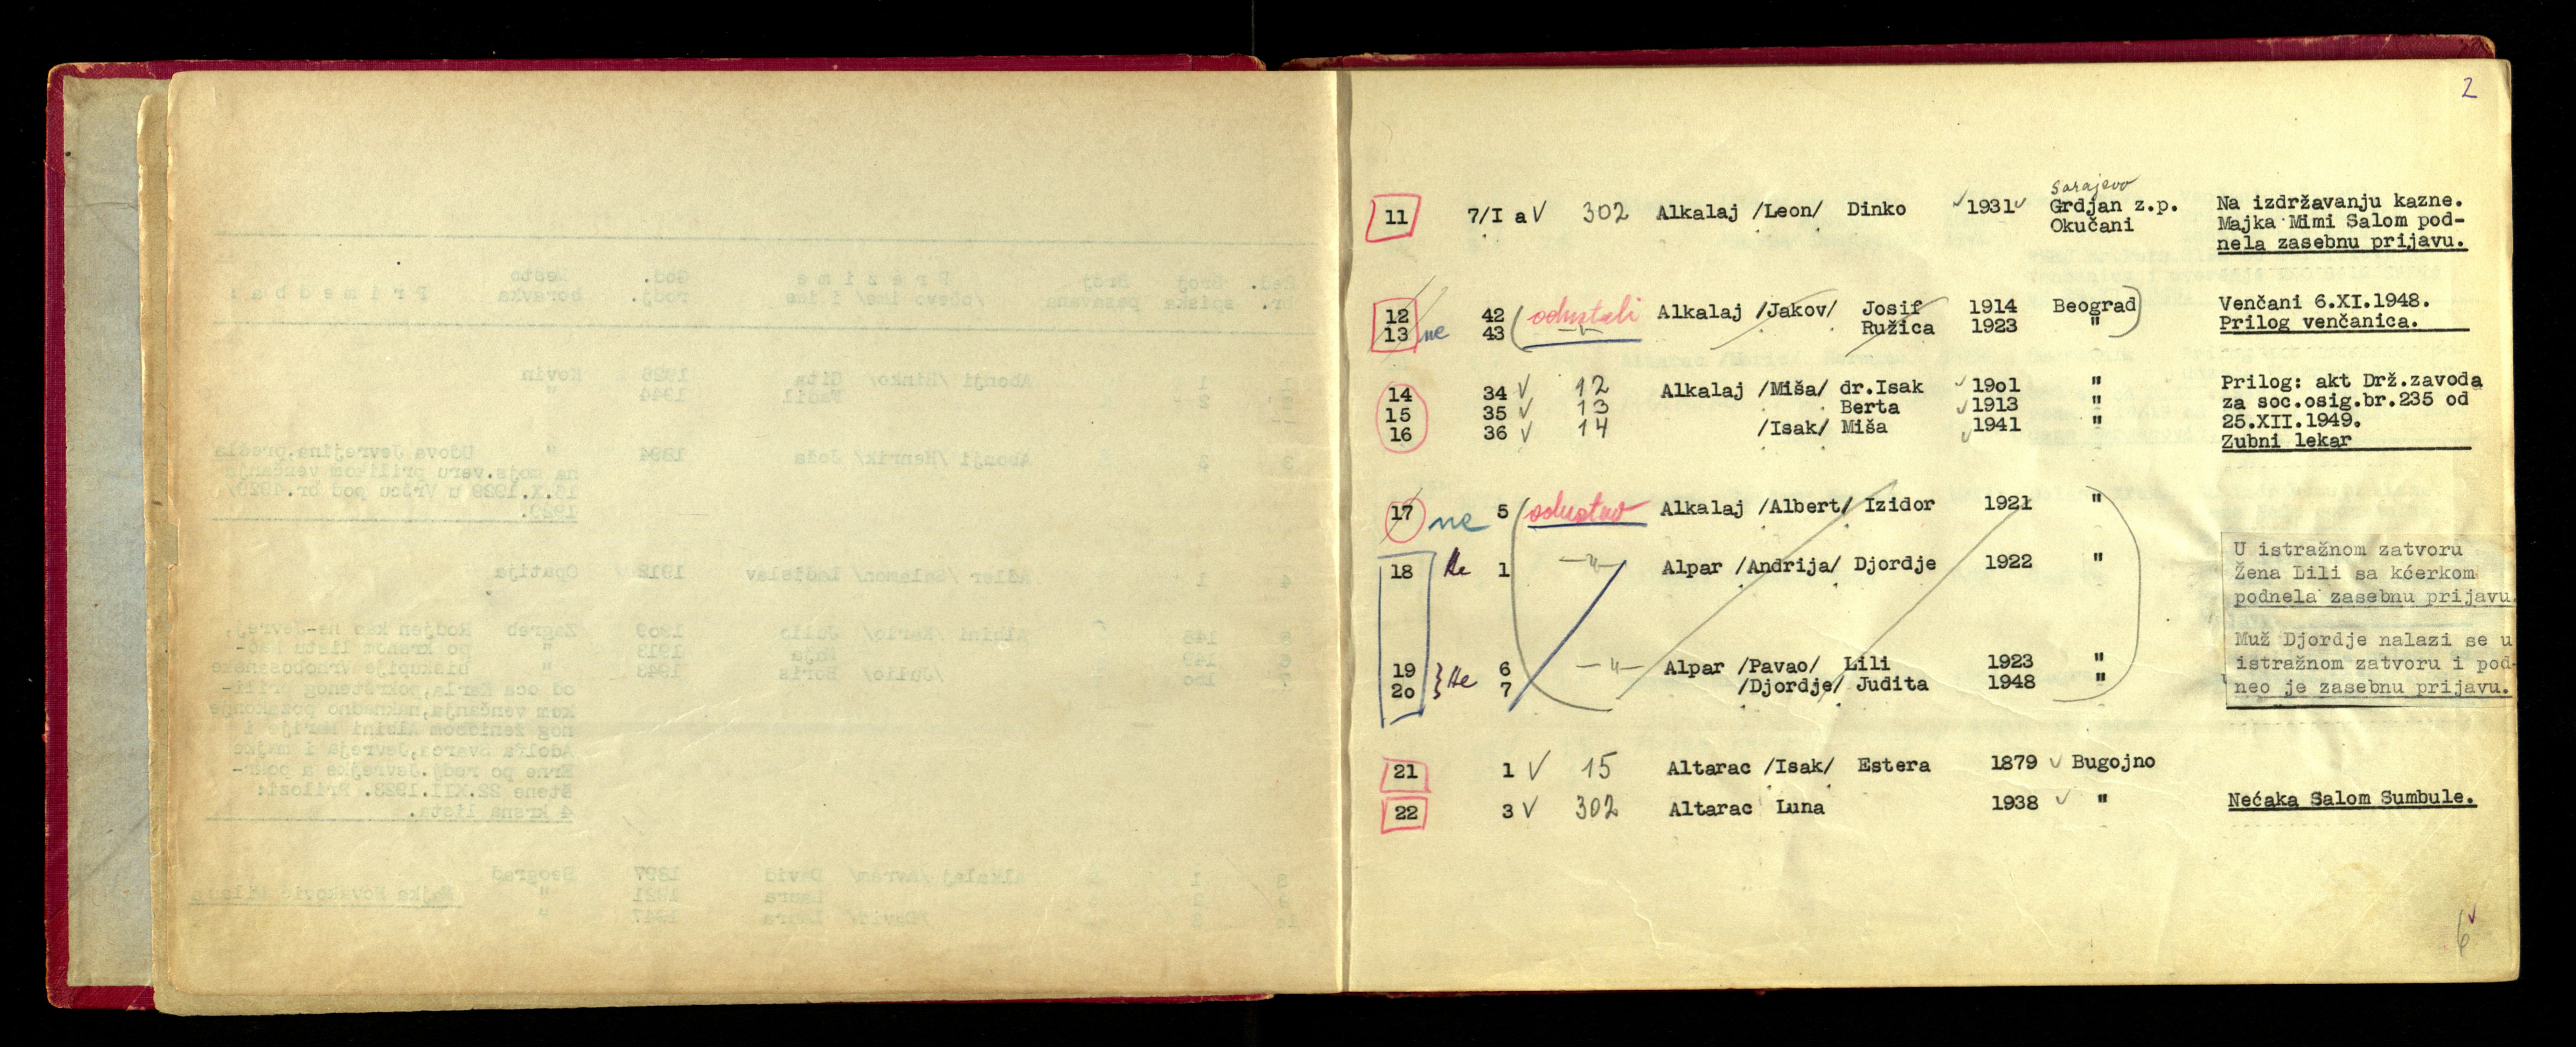 2
Sarajevo
11 7/I a V 302 Alkalaj /Leon/ Dinko 1931 Grdjan z.p. Na izdržavanju kazne.
Okučani Majka Mimi Salom pod-
nela zasebnu prijavu.
12 42 odustali Alkalaj /Jakov/ Josif 1914 Beograd Venčani 6.XI.1948.
13 ne 43 —"— Ružica 1923 " Prilog venčanica.
14 34 V 12 Alkalaj /Miša/ dr.Isak 19o1 " Prilog: akt Drž.zavoda
15 35 V 13 Berta 1913 " za soc.osig.br.235 od
16 36 V 14 /Isak/ Miša 1941 " 25.XII.1949.
Zubni lekar
17 ne 5 odustao Alkalaj /Albert/ Izidor 1921 "
18 Ne 1 —"— Alpar /Andrija/ Djordje 1922 " U istražnom zatvoru
Žena Lili sa kćerkom
podnela zasebnu prijavu.
19 Ne 6 —"— Alpar /Pavao/ Lili 1923 " Muž Djordje nalazi se u
2o 7 /Djordje/ Judita 1948 " istražnom zatvoru i pod-
neo je zasebnu prijavu.
21 1 V 15 Altarac /Isak/ Estera 1879 Bugojno
22 3 V 302 Altarac Luna 1938 " Nećaka Salom Sumbule.
6